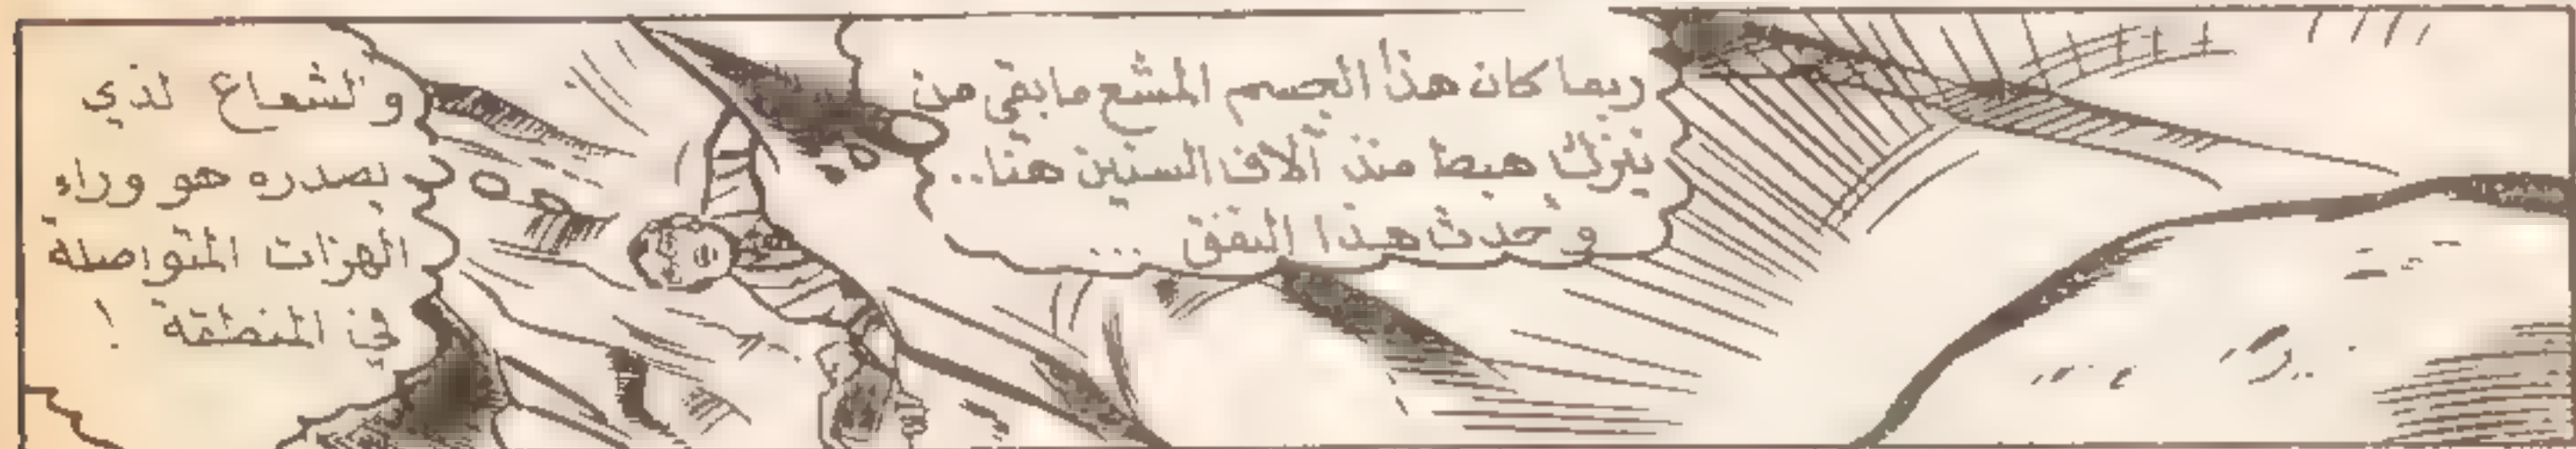 ربما كان هذا الجسم المشع مابقي من
نيزك هبط منذ آلاف السنين هنا..
و حدث هذا النفق ...
والشعاع لذي
يصدره هو وراء
الهزات المتواصلة
في المنطقة !